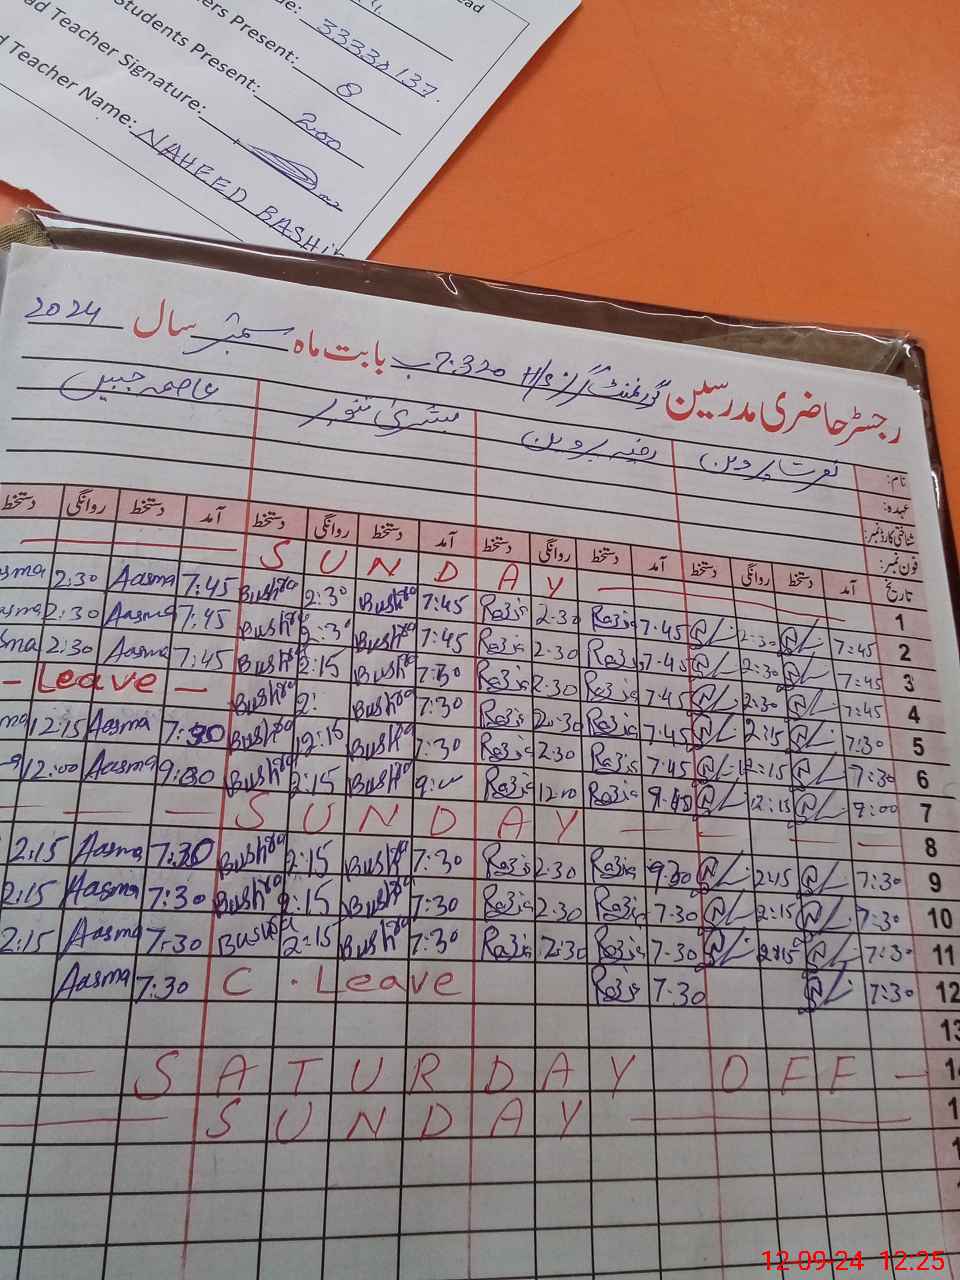 ers Present: 33330137.
Students Present: 8
ad Teacher Signature: 200
d Teacher Name: NAHEED BASHIR
رجسٹر حاضری مدرسین گورنمنٹ گرلز H/S 7:320 ب بابت ماہ ستمبر سال 2024
نام: نصرت پروین رضیہ پروین بشریٰ تنویر عاصمہ جبیں
عہدہ:
شناختی کارڈ نمبر:
فون نمبر:
تاریخ آمد دستخط روانگی دستخط آمد دستخط روانگی دستخط آمد دستخط روانگی دستخط آمد دستخط روانگی دستخط
1 S U N D A Y
2 7:45 2:30 7:45 Razia 2:30 Razia 7:45 Bushra 2:30 Bushra 7:45 Aasma 2:30
3 7:45 2:30 7:45 Razia 2:30 Razia 7:45 Bushra 2:3 Bushra 7:45 Aasma 2:30
4 7:45 2:30 7:45 Razia 2:30 Razia 7:30 Bushra 2:15 Bushra 7:45 Aasma 2:30
5 7:30 2:15 7:45 Razia 2:30 Razia 7:30 Bushra 2: Bushra - Leave -
6 7:30 12:15 7:45 Razia 2:30 Razia 7:30 Bushra 12:15 Bushra 7:30 Aasma 12:15
7 9:00 12:15 9:45 Razia 12:00 Razia 9: Bushra 2:15 Bushra 9:30 Aasma 12:00
8 S U N D A Y
9 7:30 2:15 9:30 Razia 2:30 Razia 7:30 Bushra 2:15 Bushra 7:30 Aasma 2:15
10 7:30 2:15 7:30 Razia 2:30 Razia 7:30 Bushra 2:15 Bushra 7:30 Aasma 2:15
11 7:30 2:15 7:30 Razia 2:30 Razia 7:30 Bushra 2:15 Bushra 7:30 Aasma 2:15
12 7:30 7:30 Razia C. Leave 7:30 Aasma
13
S A T U R D A Y O F F
S U N D A Y
12-09-24 12:25